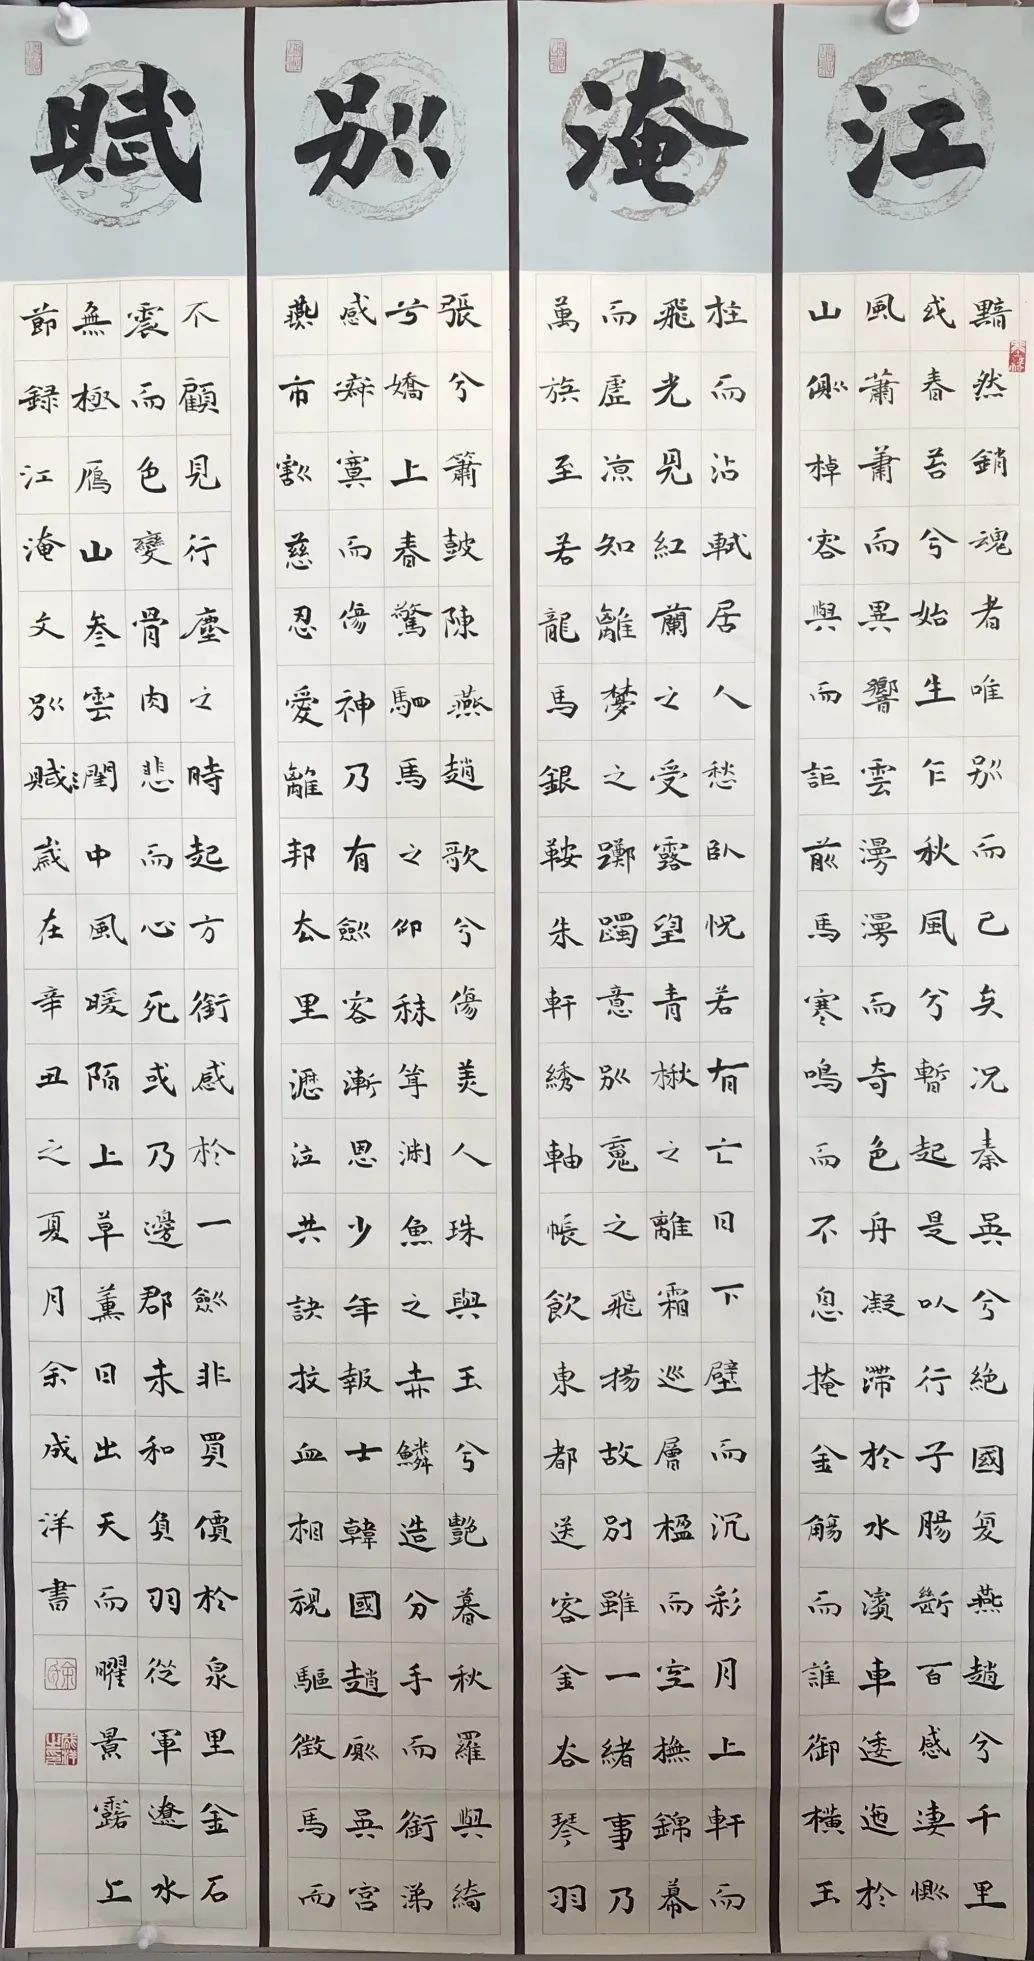 江淹别賦
黯然銷魂者唯别而已矣況秦吳兮絕國复燕趙兮千里
或春苔兮始生乍秋風兮暫起是以行子腸斷百感淒惻
風蕭蕭而異響雲漫漫而奇色舟凝滯於水濱車逶迤於
山側棹容與而詎前馬寒鳴而不息掩金觴而誰御橫玉
柱而沾軾居人愁臥怳若有亡日下壁而沉彩月上軒而
飛光見紅蘭之受露望青楸之離霜巡層楹而空撫錦幕
而虛涼知離夢之躑躅意别魂之飛揚故别雖一緒事乃
萬族至若龍馬銀鞍朱軒綉軸帳飲東都送客金谷琴羽
張兮簫鼓陳燕趙歌兮傷美人珠與玉兮艷暮秋羅與綺
兮嬌上春驚駟馬之仰秣聳淵魚之赤鱗造分手而銜涕
感寂寞而傷神乃有劍客漸恩少年報士韓國趙厠吳宮
燕市割慈忍愛離邦去里瀝泣共訣抆血相視驅徵馬而
不顧見行塵之時起方銜感於一劍非買價於泉里金石
震而色變骨肉悲而心死或乃邊郡未和負羽從軍遼水
無極雁山參雲閨中風暖陌上草薰日出天而曜景露上
節録江淹文别賦歲在辛丑之夏月余成洋書